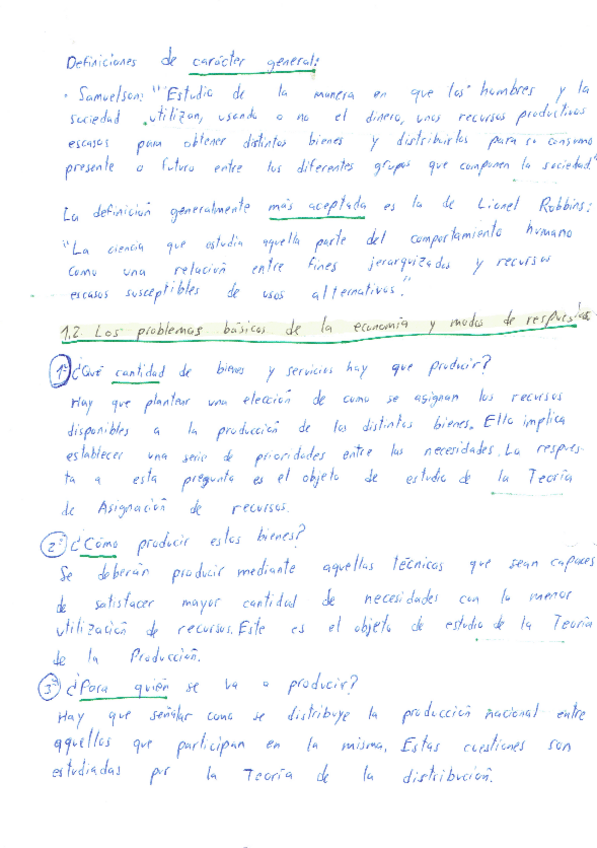 Definiciones de carácter general:
· Samuelson: "Estudio de la manera en que los hombres y la
sociedad utilizan, usando o no el dinero, unos recursos productivos
escasos para obtener distintos bienes y distribuirlos para su consumo
presente o futuro entre los diferentes grupos que componen la sociedad."
La definición generalmente más aceptada es la de Lionel Robbins:
"La ciencia que estudia aquella parte del comportamiento humano
como una relación entre fines jerarquizados y recursos
escasos susceptibles de usos alternativos."
1.2. Los problemas básicos de la economía y modos de respuestas.
1º ¿Qué cantidad de bienes y servicios hay que producir?
Hay que plantear una elección de como se asignan los recursos
disponibles a la producción de los distintos bienes. Ello implica
establecer una serie de prioridades entre las necesidades. La respues-
ta a esta pregunta es el objeto de estudio de la Teoría
de Asignación de recursos.
2º ¿Cómo producir estos bienes?
Se deberán producir mediante aquellas técnicas que sean capaces
de satisfacer mayor cantidad de necesidades con la menor
utilización de recursos. Este es el objeto de estudio de la Teoría
de la Producción.
3º ¿Para quién se va a producir?
Hay que señalar como se distribuye la producción nacional entre
aquellos que participan en la misma. Estas cuestiones son
estudiadas por la Teoría de la distribución.